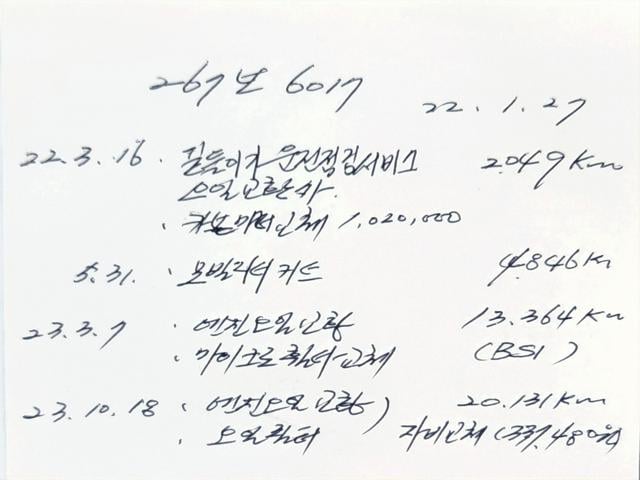 267보 6017
22.1.27
22.3.16. 길들이기 운전점검서비스 2.049Km
오일교환
교체 1,020,000
5.31. 모빌리티 키트 4.846Km
23.3.7 · 엔진오일교환 13.364Km
· 마이크로휠터 교체 (BSI)
23.10.18 · 엔진오일교환) 20.131Km
· 오일휠터 자비교체 (337.480원)